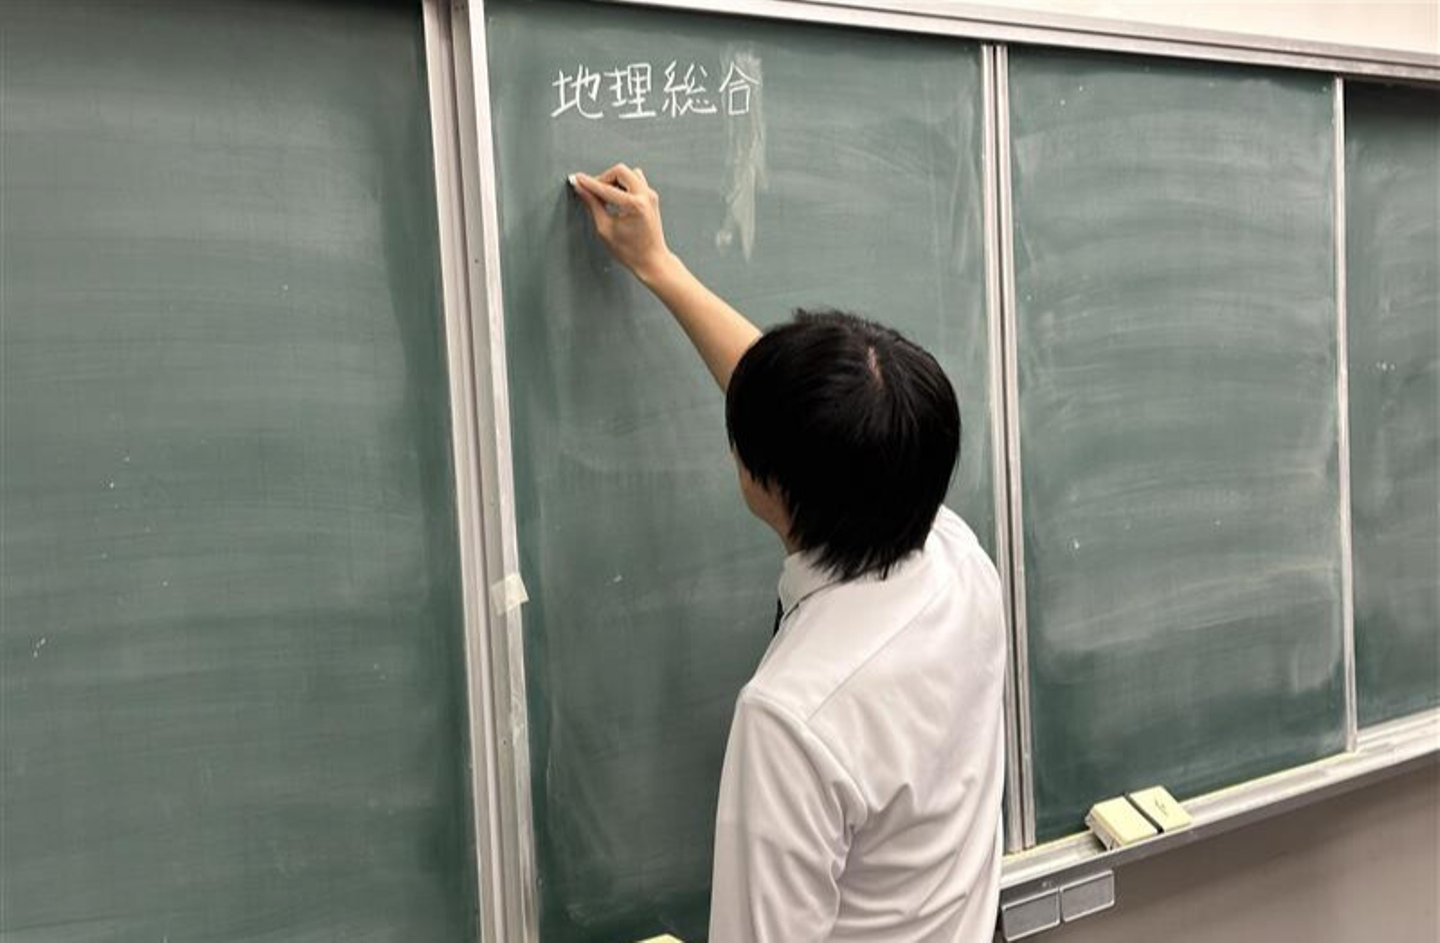 地理総合